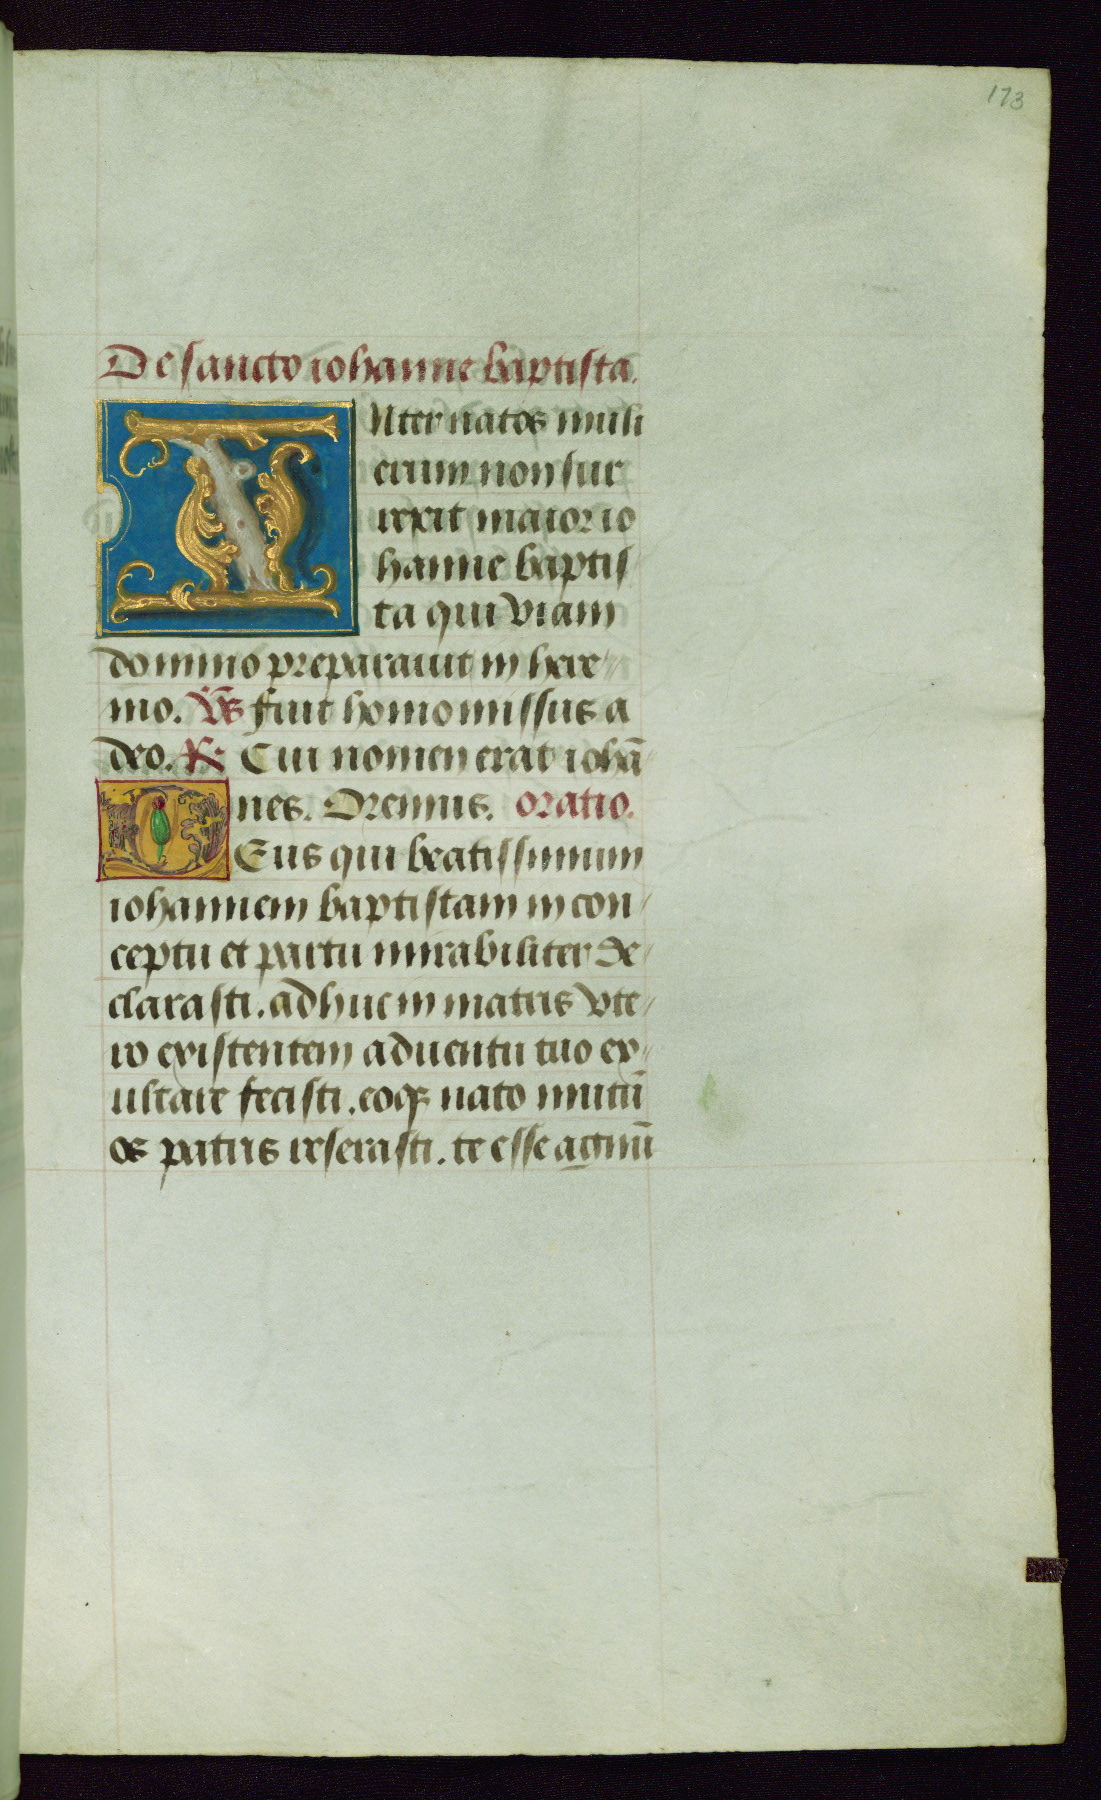 173
De sancto iohanne baptista.
INter natos muli
erum non sur
rexit maior io
hanne baptis
ta qui viam
domino preparauit in here
mo. V̄s fuit homo missus a
deo. R. Cui nomen erat iohā
nes. Oremus. oratio.
DEus qui beatissimum
iohannem baptistam in con
ceptu et partu mirabiliter de
clarasti. adhuc in matris vte
ro existentem aduentu tuo ex
ultare fecisti. eoqꝫ nato mutū
os patris reserasti. te esse agnū